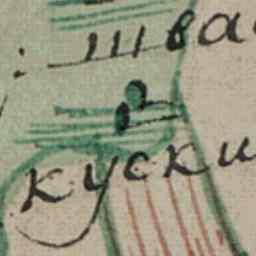 : шва
в
куски